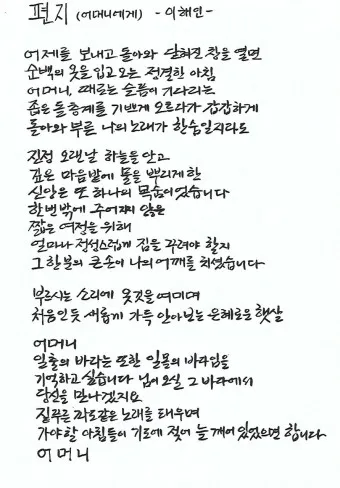 편지 (어머니에게) - 이해인 -
어제를 보내고 돌아와 닫혀진 창을 열면
순백의 옷을 입고 오는 정결한 아침
어머니, 때로는 슬픔이 기다리는
좁은 돌층계를 기쁘게 오르다가 갑갑하게
돌아와 부른 나의 노래가 한숨일지라도
진정 오랜날 하늘을 안고
깊은 마음밭에 돌을 뿌리게 한
신앙은 또 하나의 목숨이었습니다
한번밖에 주어지지 않은
짧은 여정을 위해
얼마나 정성스럽게 짐을 꾸려야 할지
그 한분의 큰손이 나의 어깨를 치셨습니다
부르시는 소리에 옷깃을 여미며
처음인듯 새롭게 가득 안아보는 은혜로운 햇살
어머니
일출의 바다는 또한 일몰의 바다임을
기억하고 싶습니다 님이 오실 그 바다에서
당신을 만나겠지요
질푸른 파도같은 노래를 태우며
가야할 아침들이 기도에 젖어 늘 깨어 있었으면 합니다
어머니